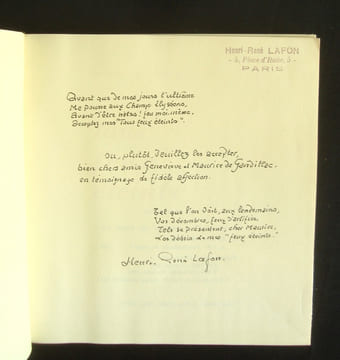 Henri-René LAFON
- 5, Place d'Iéna, 5 -
PARIS
Avant que de mes jours l'ultième
Me pousse aux Champs élyséens,
Avant d'être hélas! feu moi-même,
Acceptez mes "Tous feux éteints".
Ou, plutôt, veuillez les accepter,
bien chers amis Geneviève et Maurice de Gandillac
en témoignage de fidèle affection.
Tel que l'on doit, aux lendemains,
Vos décembres, feux d'artifice,
Tels se présentent, cher Maurice,
débris de mes "feux éteints".
Henri René Lafon.